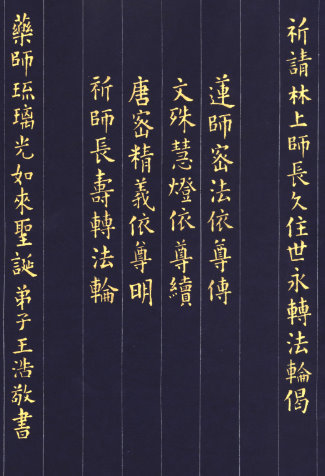 祈請林上師長久住世永轉法輪偈
蓮師密法依尊傳
文殊慧燈依尊續
唐密精義依尊明
祈師長壽轉法輪
藥師琉璃光如來聖誕弟子王浩敬書